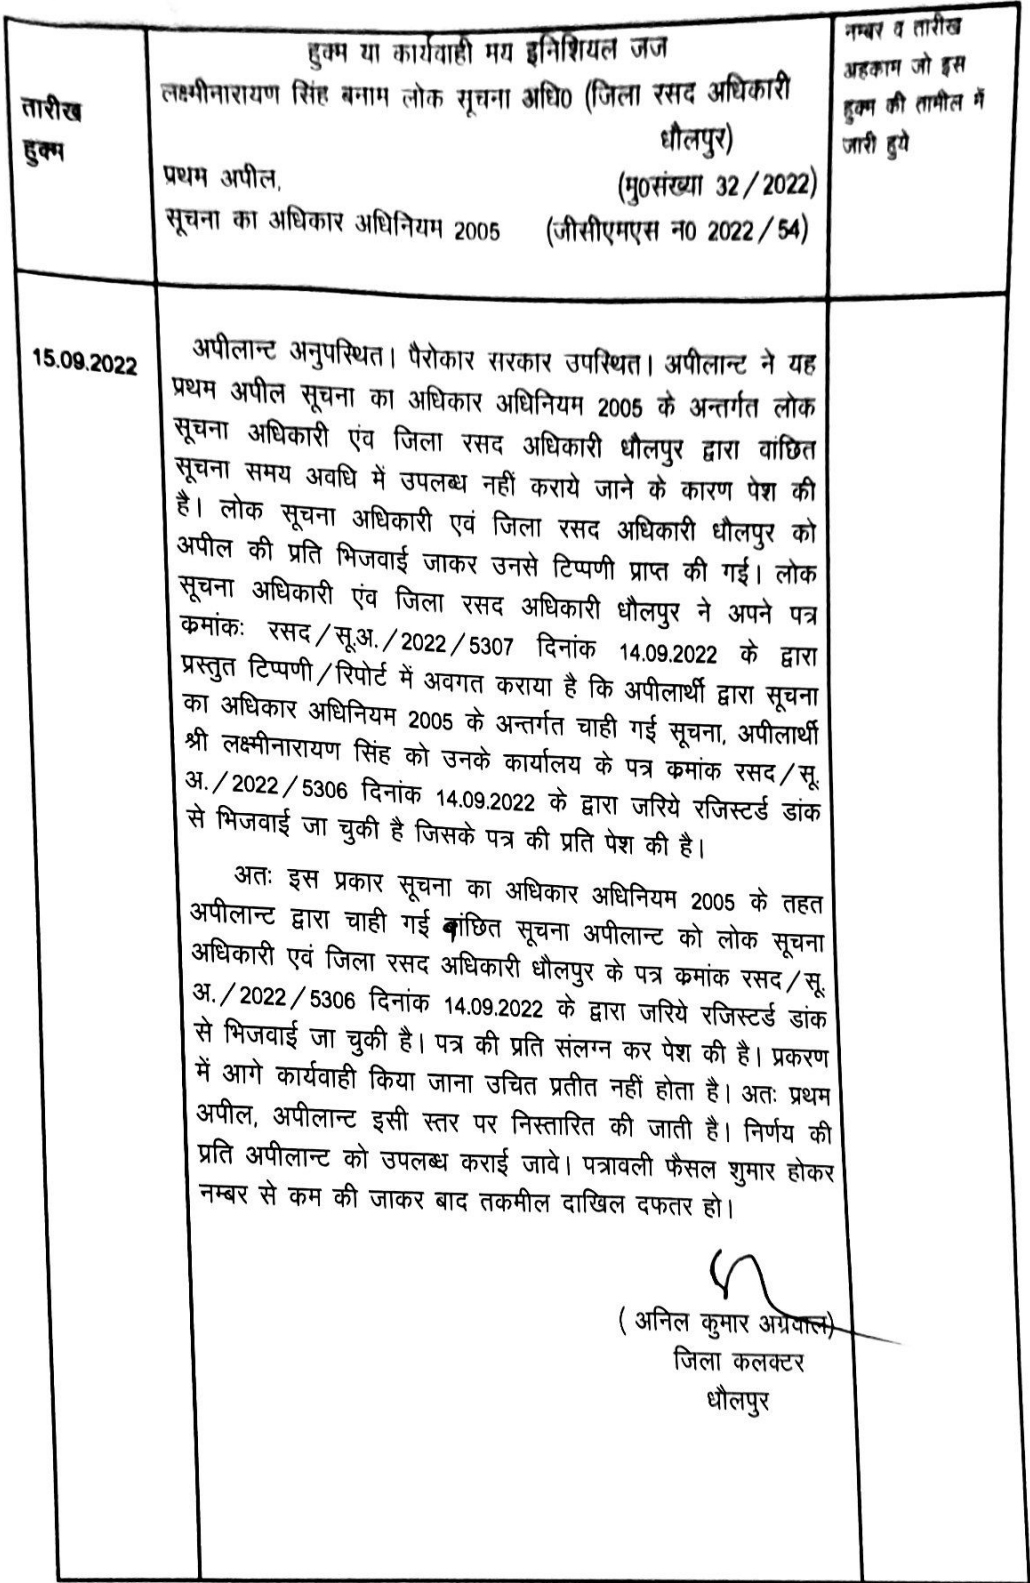 तारीख
हुक्म
हुक्म या कार्यवाही मय इनिशियल जज
लक्ष्मीनारायण सिंह बनाम लोक सूचना अधि0 (जिला रसद अधिकारी
धौलपुर)
प्रथम अपील, (मु0संख्या 32/2022)
सूचना का अधिकार अधिनियम 2005 (जीसीएमएस न0 2022/54)
नम्बर व तारीख
अहकाम जो इस
हुक्म की तामील में
जारी हुये
15.09.2022
अपीलान्ट अनुपस्थित। पैरोकार सरकार उपस्थित। अपीलान्ट ने यह
प्रथम अपील सूचना का अधिकार अधिनियम 2005 के अन्तर्गत लोक
सूचना अधिकारी एंव जिला रसद अधिकारी धौलपुर द्वारा वांछित
सूचना समय अवधि में उपलब्ध नहीं कराये जाने के कारण पेश की
है। लोक सूचना अधिकारी एवं जिला रसद अधिकारी धौलपुर को
अपील की प्रति भिजवाई जाकर उनसे टिप्पणी प्राप्त की गई। लोक
सूचना अधिकारी एंव जिला रसद अधिकारी धौलपुर ने अपने पत्र
क्रमांकः रसद/सू.अ./2022/5307 दिनांक 14.09.2022 के द्वारा
प्रस्तुत टिप्पणी/रिपोर्ट में अवगत कराया है कि अपीलार्थी द्वारा सूचना
का अधिकार अधिनियम 2005 के अन्तर्गत चाही गई सूचना, अपीलार्थी
श्री लक्ष्मीनारायण सिंह को उनके कार्यालय के पत्र क्रमांक रसद/सू.
अ./2022/5306 दिनांक 14.09.2022 के द्वारा जरिये रजिस्टर्ड डांक
से भिजवाई जा चुकी है जिसके पत्र की प्रति पेश की है।
अतः इस प्रकार सूचना का अधिकार अधिनियम 2005 के तहत
अपीलान्ट द्वारा चाही गई वांछित सूचना अपीलान्ट को लोक सूचना
अधिकारी एवं जिला रसद अधिकारी धौलपुर के पत्र क्रमांक रसद/सू.
अ./2022/5306 दिनांक 14.09.2022 के द्वारा जरिये रजिस्टर्ड डांक
से भिजवाई जा चुकी है। पत्र की प्रति संलग्न कर पेश की है। प्रकरण
में आगे कार्यवाही किया जाना उचित प्रतीत नहीं होता है। अतः प्रथम
अपील, अपीलान्ट इसी स्तर पर निस्तारित की जाती है। निर्णय की
प्रति अपीलान्ट को उपलब्ध कराई जावे। पत्रावली फैसल शुमार होकर
नम्बर से कम की जाकर बाद तकमील दाखिल दफतर हो।
( अनिल कुमार अग्रवाल)
जिला कलक्टर
धौलपुर